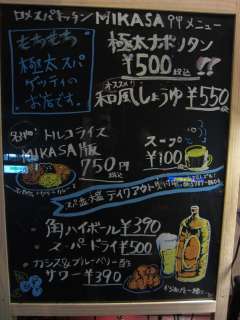 ロメスパキッチン MIKASA メニュー
もちもち
極太スパ
ゲッティの
お店です。
極太ナポリタン
¥500 税込 !!
オススメ!!
和風しょうゆ ¥550
トルコライス
MIKASA版
750円
税込
スープ
¥100
テイクアウト
角ハイボール ¥390
スーパードライ ¥500
カシス&ブルーベリー酢
サワー ¥390